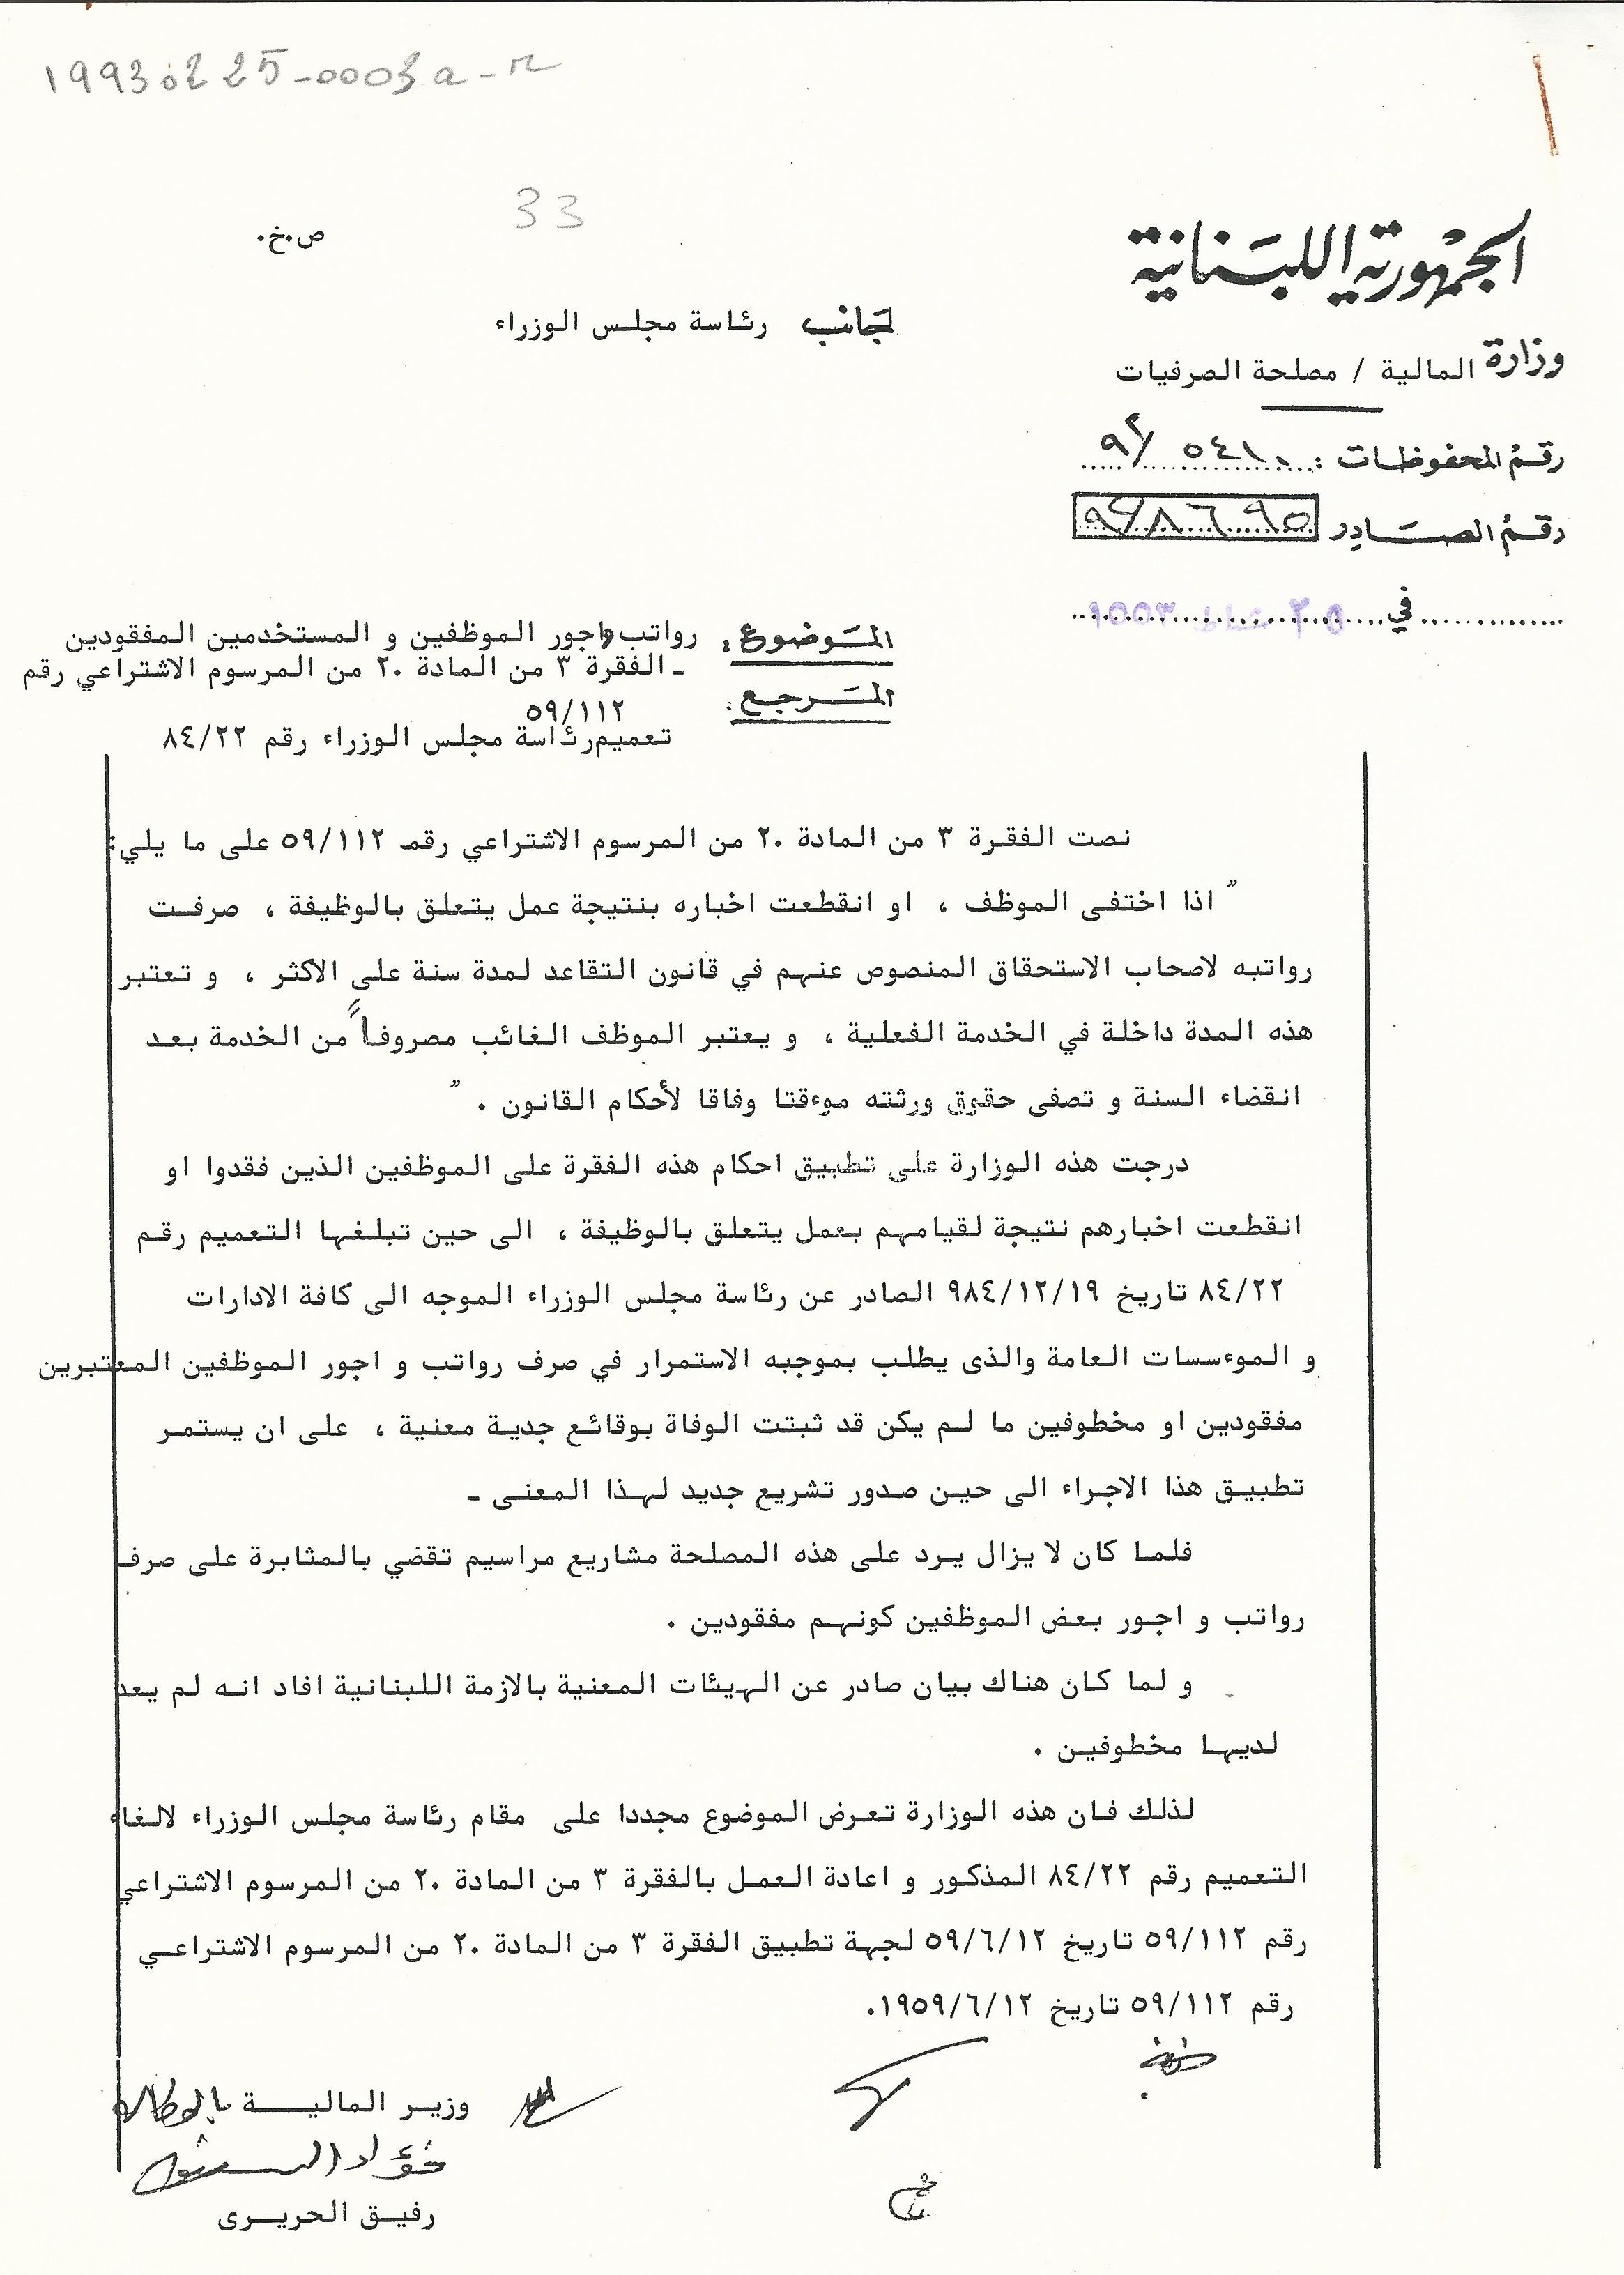 19930225-0003a-r
33
ص.خ.
الجمهورية اللبنانية
لجانب رئاسة مجلس الوزراء
وزارة المالية / مصلحة الصرفيات
رقم المحفوظات :
رقم الصادر
في
الموضوع : رواتب واجور الموظفين و المستخدمين المفقودين
المرجع : ـ الفقرة ٣ من المادة ٢٠ من المرسوم الاشتراعي رقم
٥٩/١١٢
تعميم رئاسة مجلس الوزراء رقم ٨٤/٢٢
نصت الفقرة ٣ من المادة ٢٠ من المرسوم الاشتراعي رقم ٥٩/١١٢ على ما يلي:
" اذا اختفى الموظف ، او انقطعت اخباره بنتيجة عمل يتعلق بالوظيفة ، صرفت
رواتبه لاصحاب الاستحقاق المنصوص عنهم في قانون التقاعد لمدة سنة على الاكثر ، و تعتبر
هذه المدة داخلة في الخدمة الفعلية ، و يعتبر الموظف الغائب مصروفاً من الخدمة بعد
انقضاء السنة و تصفى حقوق ورثته موءقتا وفاقا لأحكام القانون . "
درجت هذه الوزارة على تطبيق احكام هذه الفقرة على الموظفين الذين فقدوا او
انقطعت اخبارهم نتيجة لقيامهم بعمل يتعلق بالوظيفة ، الى حين تبلغها التعميم رقم
٨٤/٢٢ تاريخ ٩٨٤/١٢/١٩ الصادر عن رئاسة مجلس الوزراء الموجه الى كافة الادارات
و الموءسسات العامة والذى يطلب بموجبه الاستمرار في صرف رواتب و اجور الموظفين المعتبرين
مفقودين او مخطوفين ما لم يكن قد ثبتت الوفاة بوقائع جدية معنية ، على ان يستمر
تطبيق هذا الاجراء الى حين صدور تشريع جديد لهذا المعنى ـ
فلما كان لا يزال يرد على هذه المصلحة مشاريع مراسيم تقضي بالمثابرة على صرف
رواتب و اجور بعض الموظفين كونهم مفقودين .
و لما كان هناك بيان صادر عن الهيئات المعنية بالازمة اللبنانية افاد انه لم يعد
لديها مخطوفين .
لذلك فان هذه الوزارة تعرض الموضوع مجددا على مقام رئاسة مجلس الوزراء لالغاء
التعميم رقم ٨٤/٢٢ المذكور و اعادة العمل بالفقرة ٣ من المادة ٢٠ من المرسوم الاشتراعي
رقم ٥٩/١١٢ تاريخ ٥٩/٦/١٢ لجهة تطبيق الفقرة ٣ من المادة ٢٠ من المرسوم الاشتراعي
رقم ٥٩/١١٢ تاريخ ١٩٥٩/٦/١٢.
وزير المالية بالوكالة
فؤاد السنيورة
رفيق الحريرى